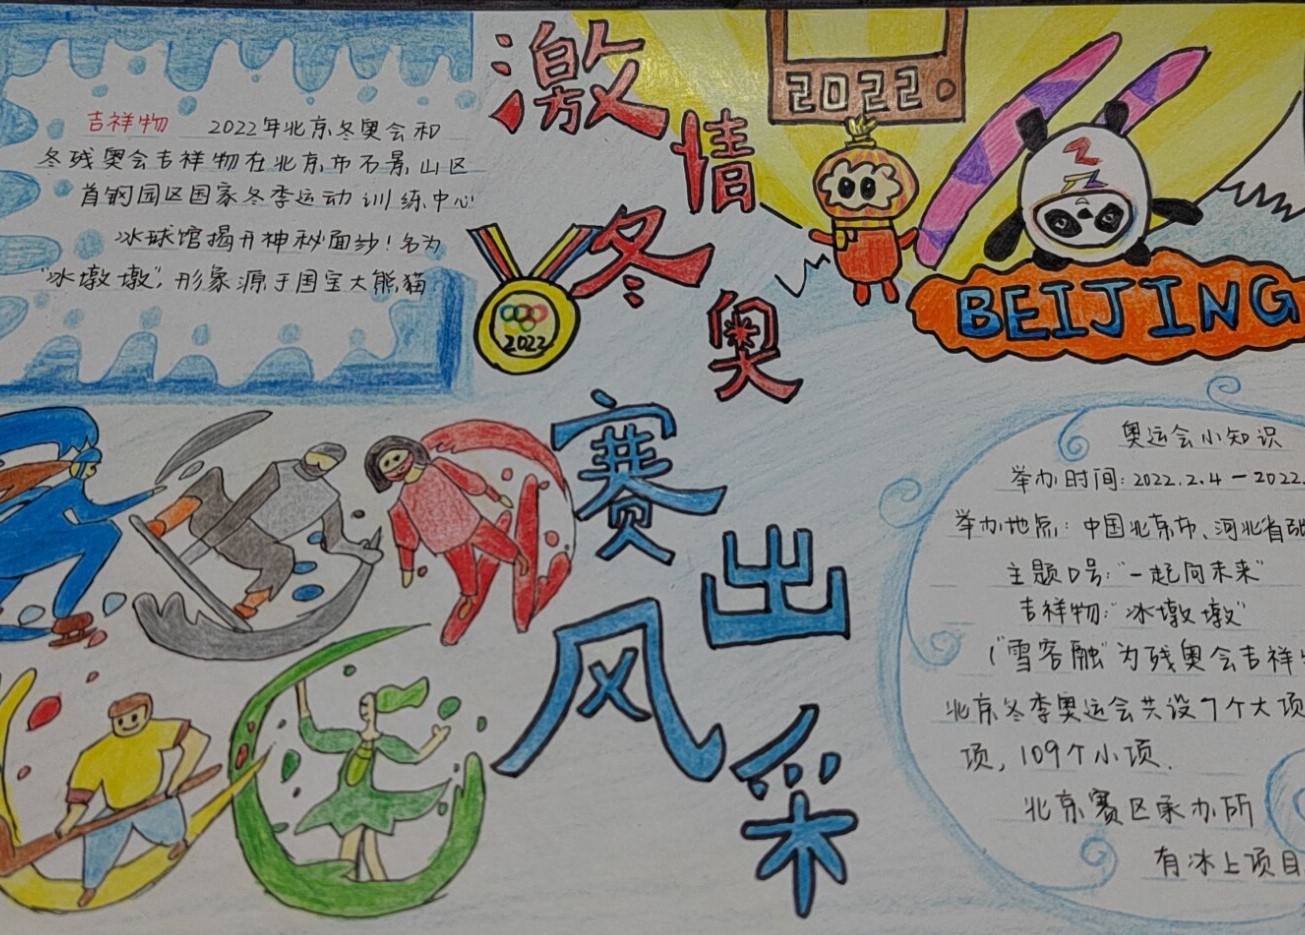 激情冬奥
赛出风采
2022
BEIJING
2022
吉祥物 2022年北京冬奥会和
冬残奥会吉祥物在北京市石景山区
首钢园区国家冬季运动训练中心
冰球馆揭开神秘面纱!名为
"冰墩墩",形象源于国宝大熊猫
奥运会小知识
举办时间:2022.2.4－2022.
举办地点:中国北京市、河北省
主题口号:"一起向未来"
吉祥物:"冰墩墩"
("雪容融"为残奥会吉祥
北京冬季奥运会共设7个大项
项,109个小项.
北京赛区承办所
有冰上项目